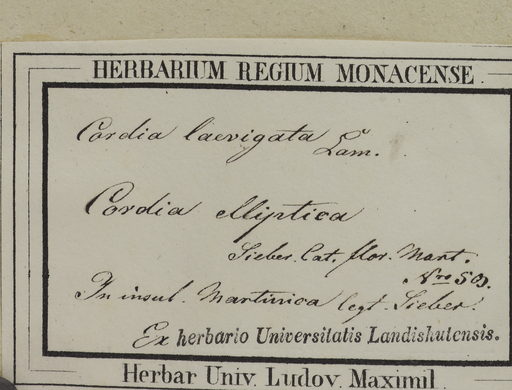 HERBARIUM REGIUM MONACENSE.
Cordia laevigata Lam.
Cordia elliptica
Sieber. Cat. flor. Mart.
Nro 50.
In insul. Martinica legt. Sieber.
Ex herbario Universitatis Landishutensis.
Herbar Univ. Ludov. Maximil.